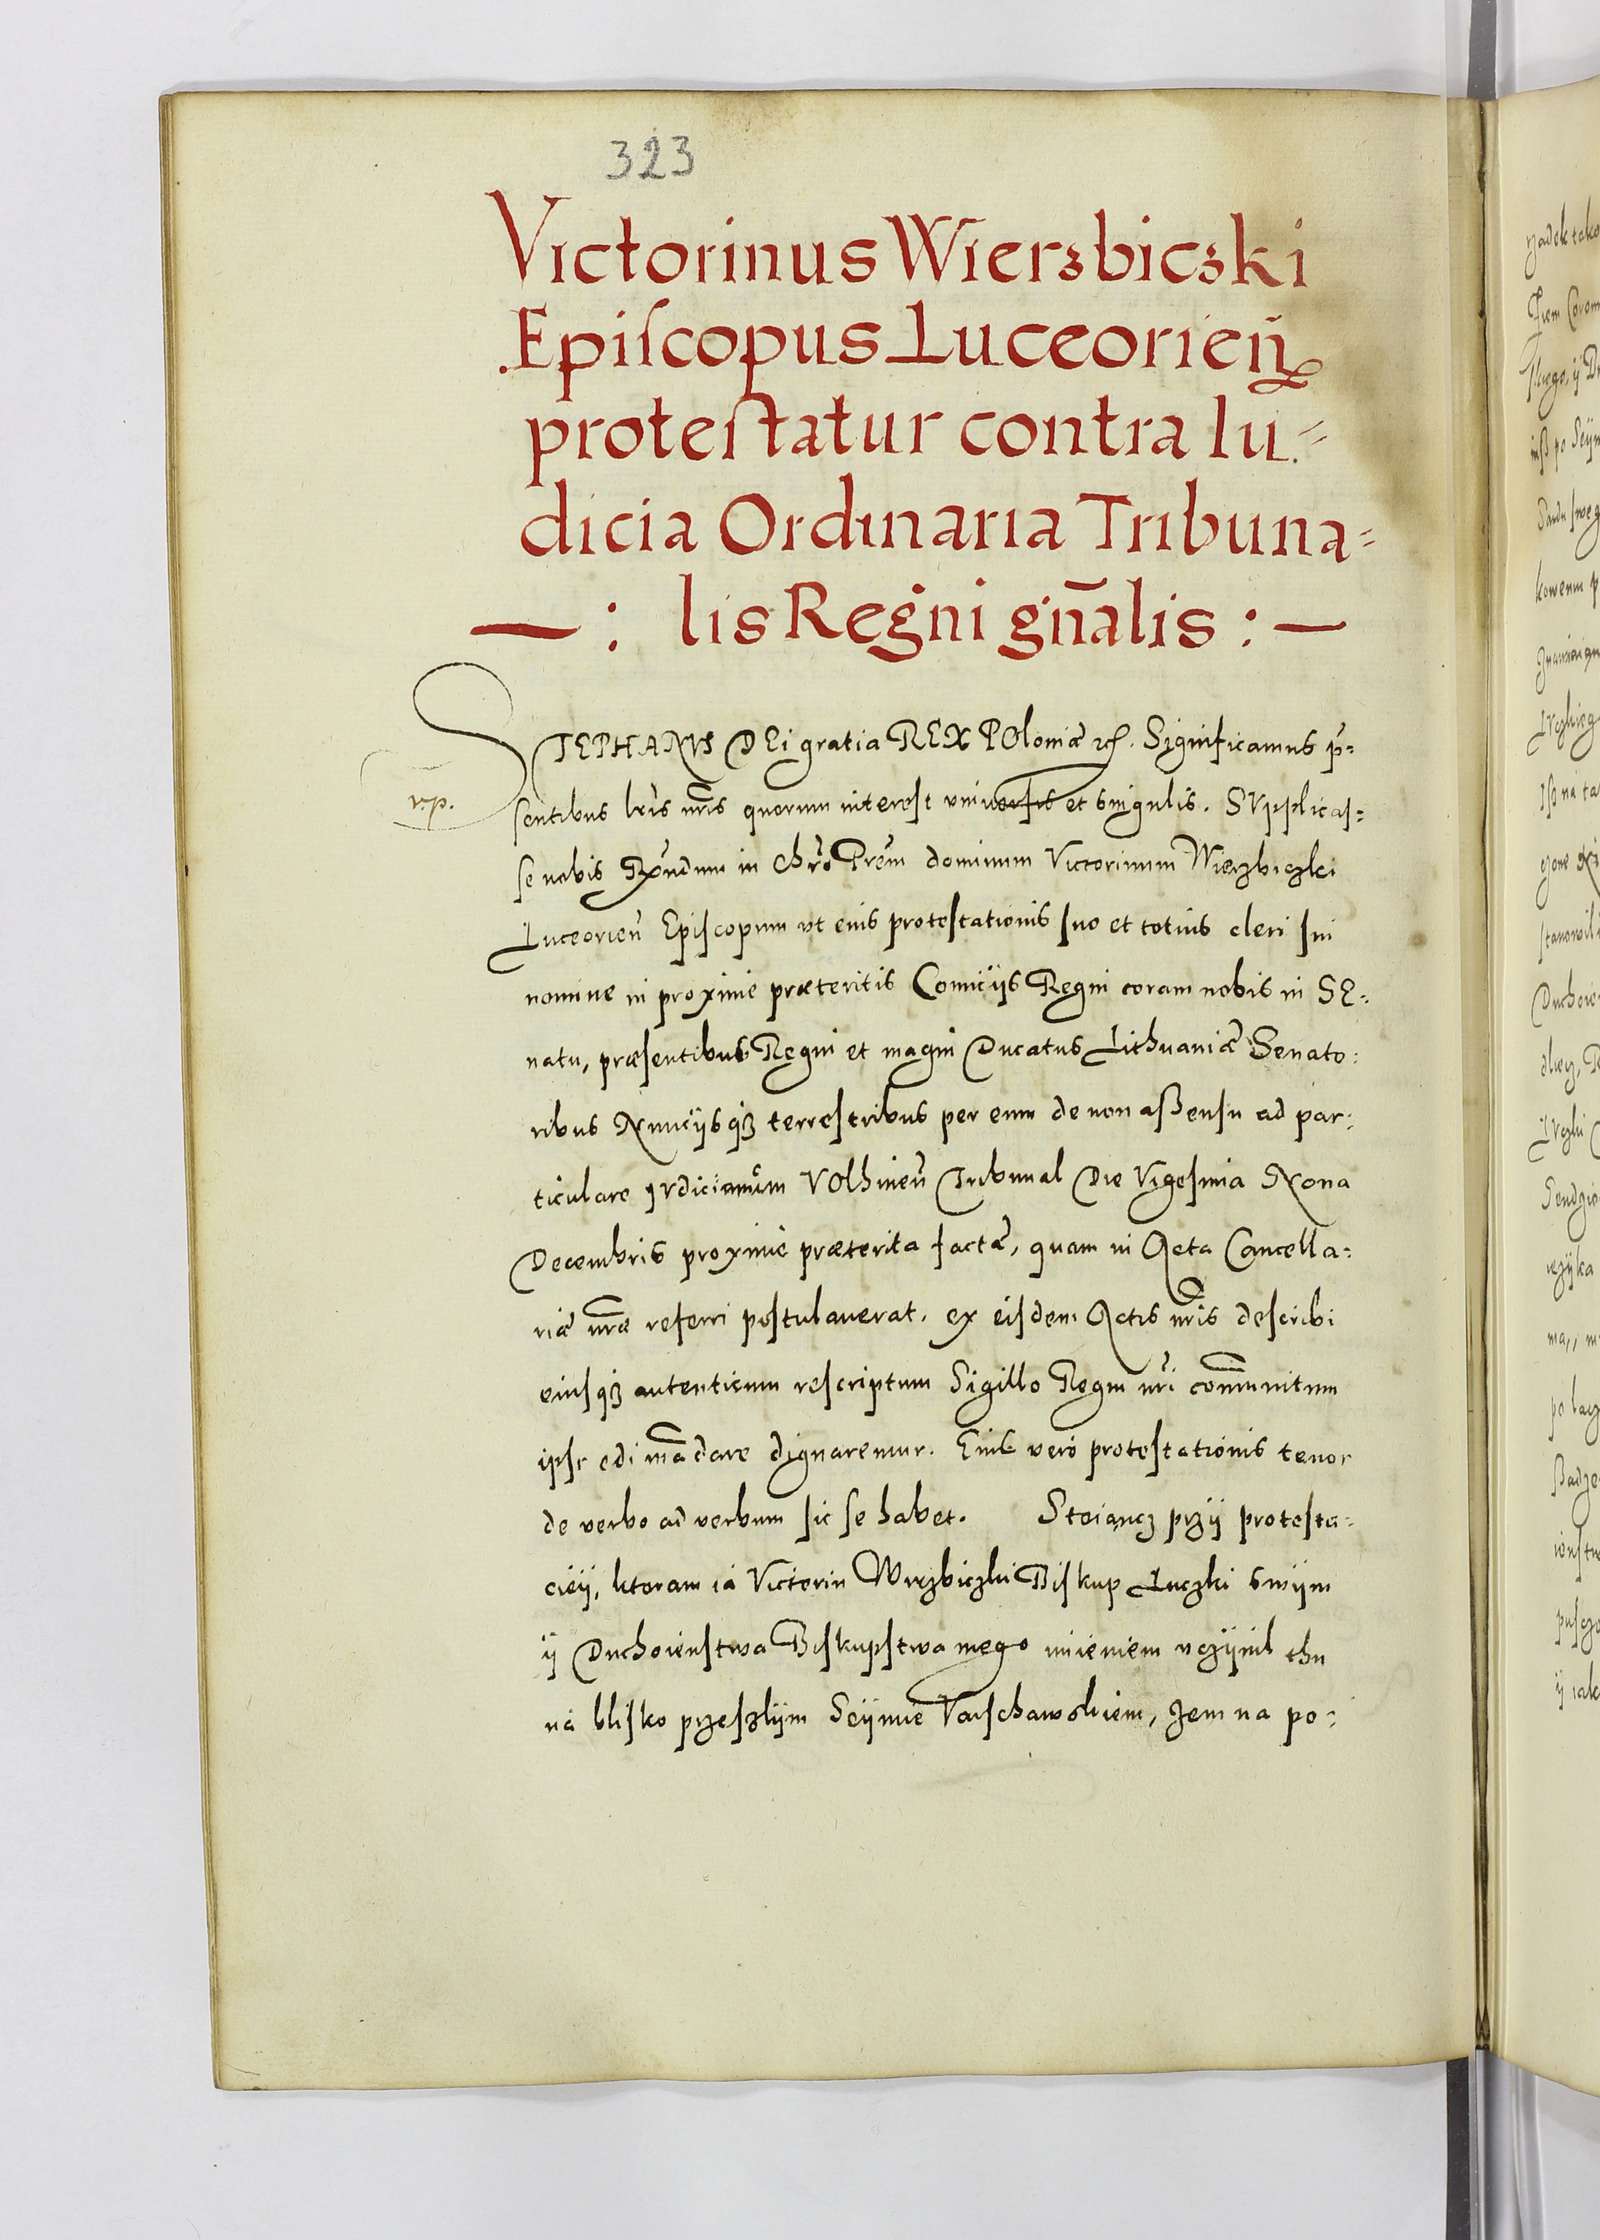 323
Victorinus Wierzbiczki
Episcopus Luceorien̄
protestatur contra Iu=
dicia Ordinaria Tribuna=
—: lis Regni gn̄alis :—
STEPHANVS DEi gratia REX POloniæ etc. Significamus p̄=
sentibus lrīs nr̄is quorum interest vniuersis et singulis. SVpplicas=
se nobis Rx̄ndum in Chrō Prēm dominum Victorinum Wierzbiczki
Luceorien̄ Episcopum vt eius protestationis suo et totius cleri sui
nomine in proxime præteritis Comicijs Regni coram nobis in SE=
natu, præsentibus Regni et magni Ducatus Lithuaniæ Senato=
ribus Nuncijsqꝫ terrestribus per eum de non assensu ad par=
ticulare Iudicianum VOlhinen̄ Tribunal Die Vigesima Nona
Decembris proxime præterita factæ, quam in Acta Cancella=
riæ nr̄æ referri postulauerat. ex eisdem Actis nr̄is describi
eiusqꝫ autenticum rescriptum Sigillo Regni nr̄i com̄unitum
ipsi edi mādare dignaremur. Eius vero protestationis tenor
de verbo ad verbum sic se habet. Stoiancz przÿ protesta=
cieÿ, ktoram iá Victorin Wierzbiczki Biskup Luczki swÿm
ÿ Duchoienstwa Biskupstwa mego imieniem vczÿnil thu
ná blisko przeszlÿm Seÿmie Varschawskiem, zem na po=
v.p.